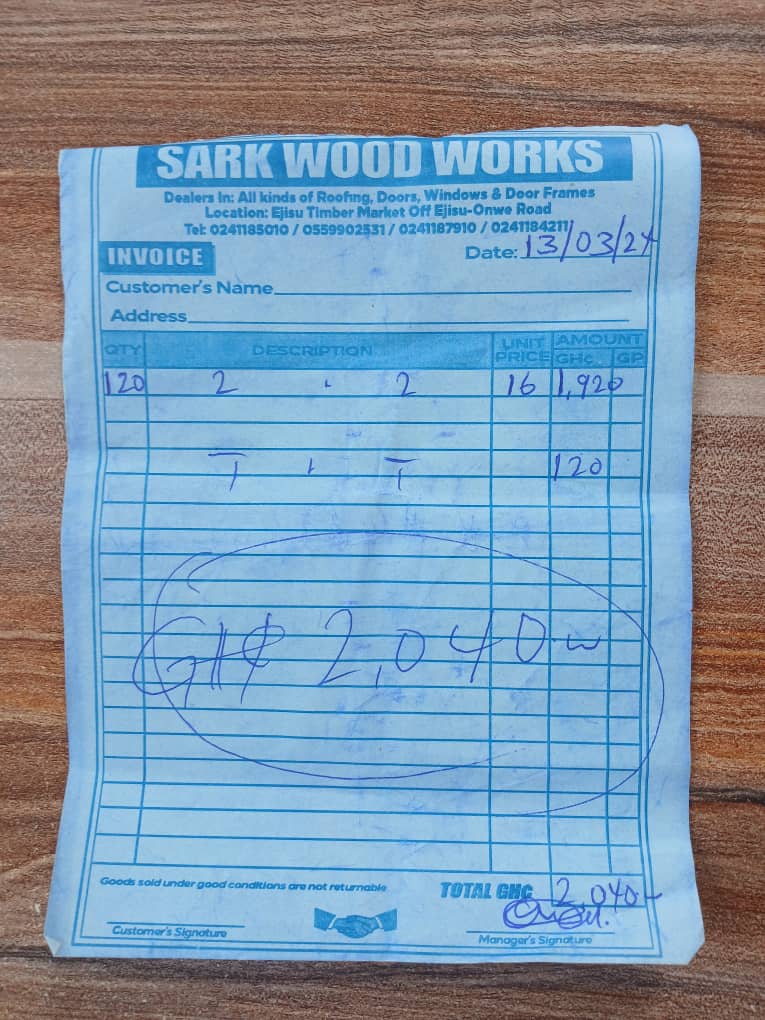 SARK WOOD WORKS
Dealers In: All kinds of Roofing, Doors, Windows & Door Frames
Location: Ejisu Timber Market Off Ejisu-Onwe Road
Tel: 0241185010 / 0559902531 / 0241187910 / 0241184211
INVOICE Date: 13/03/24
Customer's Name
Address
QTY DESCRIPTION UNIT PRICE AMOUNT GH¢. GP
120 2 " 2 16 1,920
T , T 120
GH¢ 2,040.w
Goods sold under good conditions are not returnable
TOTAL GH¢ 2,040-
Customer's Signature Manager's Signature